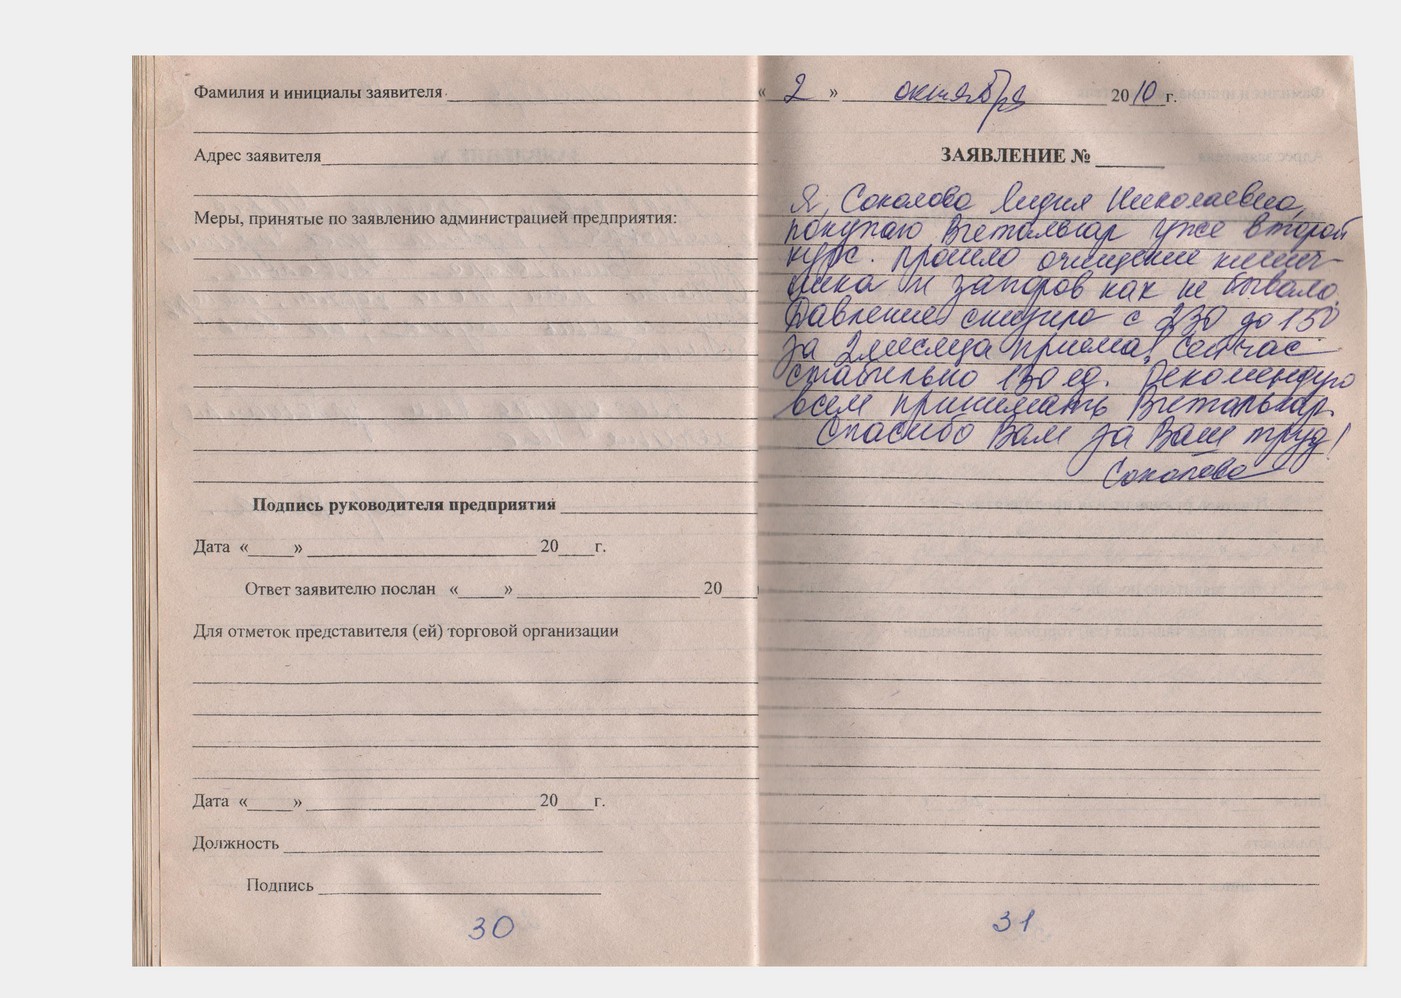 Фамилия и инициалы заявителя
Адрес заявителя
Меры, принятые по заявлению администрацией предприятия:
Подпись руководителя предприятия
Дата «_____» 20____г.
Ответ заявителю послан «_____» 20____
Для отметок представителя (ей) торговой организации
Дата «_____» 20____г.
Должность
Подпись
30
« 2 » октября 2010 г.
ЗАЯВЛЕНИЕ №
Я, Соколова Лидия Николаевна,
покупаю Витальгар уже второй
курс. Прошло очищение кишеч-
ника и запоров как не бывало.
Давление снизило с 230 до 150
за 2 месяца приема. Сейчас
стабильно 130 ед. Рекомендую
всем принимать Витальгар.
Спасибо Вам за Ваш труд!
Соколова
31